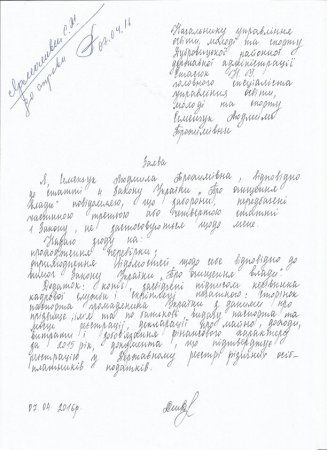 до справи
07.04.16
Начальнику управління
освіти, молоді та спорту
Дубровицької районної
державної адміністрації
головного спеціаліста
управління освіти,
молоді та спорту
Семенчук Людмили
Заява
Я, Семенчук Людмила, відповідно
до статті 4 Закону України „Про очищення
влади" повідомляю, що заборони, передбачені
частиною третьою або четвертою статті
1 Закону, не застосовуються щодо мене.
Надаю згоду на:
проходження перевірки;
оприлюднення відомостей щодо мене відповідно до
вимог Закону України „Про очищення влади".
Додаток: копії, засвідчені підписом керівника
кадрової служби і скріплені печаткою: сторінок
паспорта громадянина України з даними про
прізвище, ім'я та по батькові, видачу паспорта та
місце реєстрації, декларації про майно, доходи,
витрати і зобов'язання фінансового характеру
за 2015 рік, документа, що підтверджує
реєстрацію у Державному реєстрі фізичних осіб-
платників податків.
07.04.2016р.